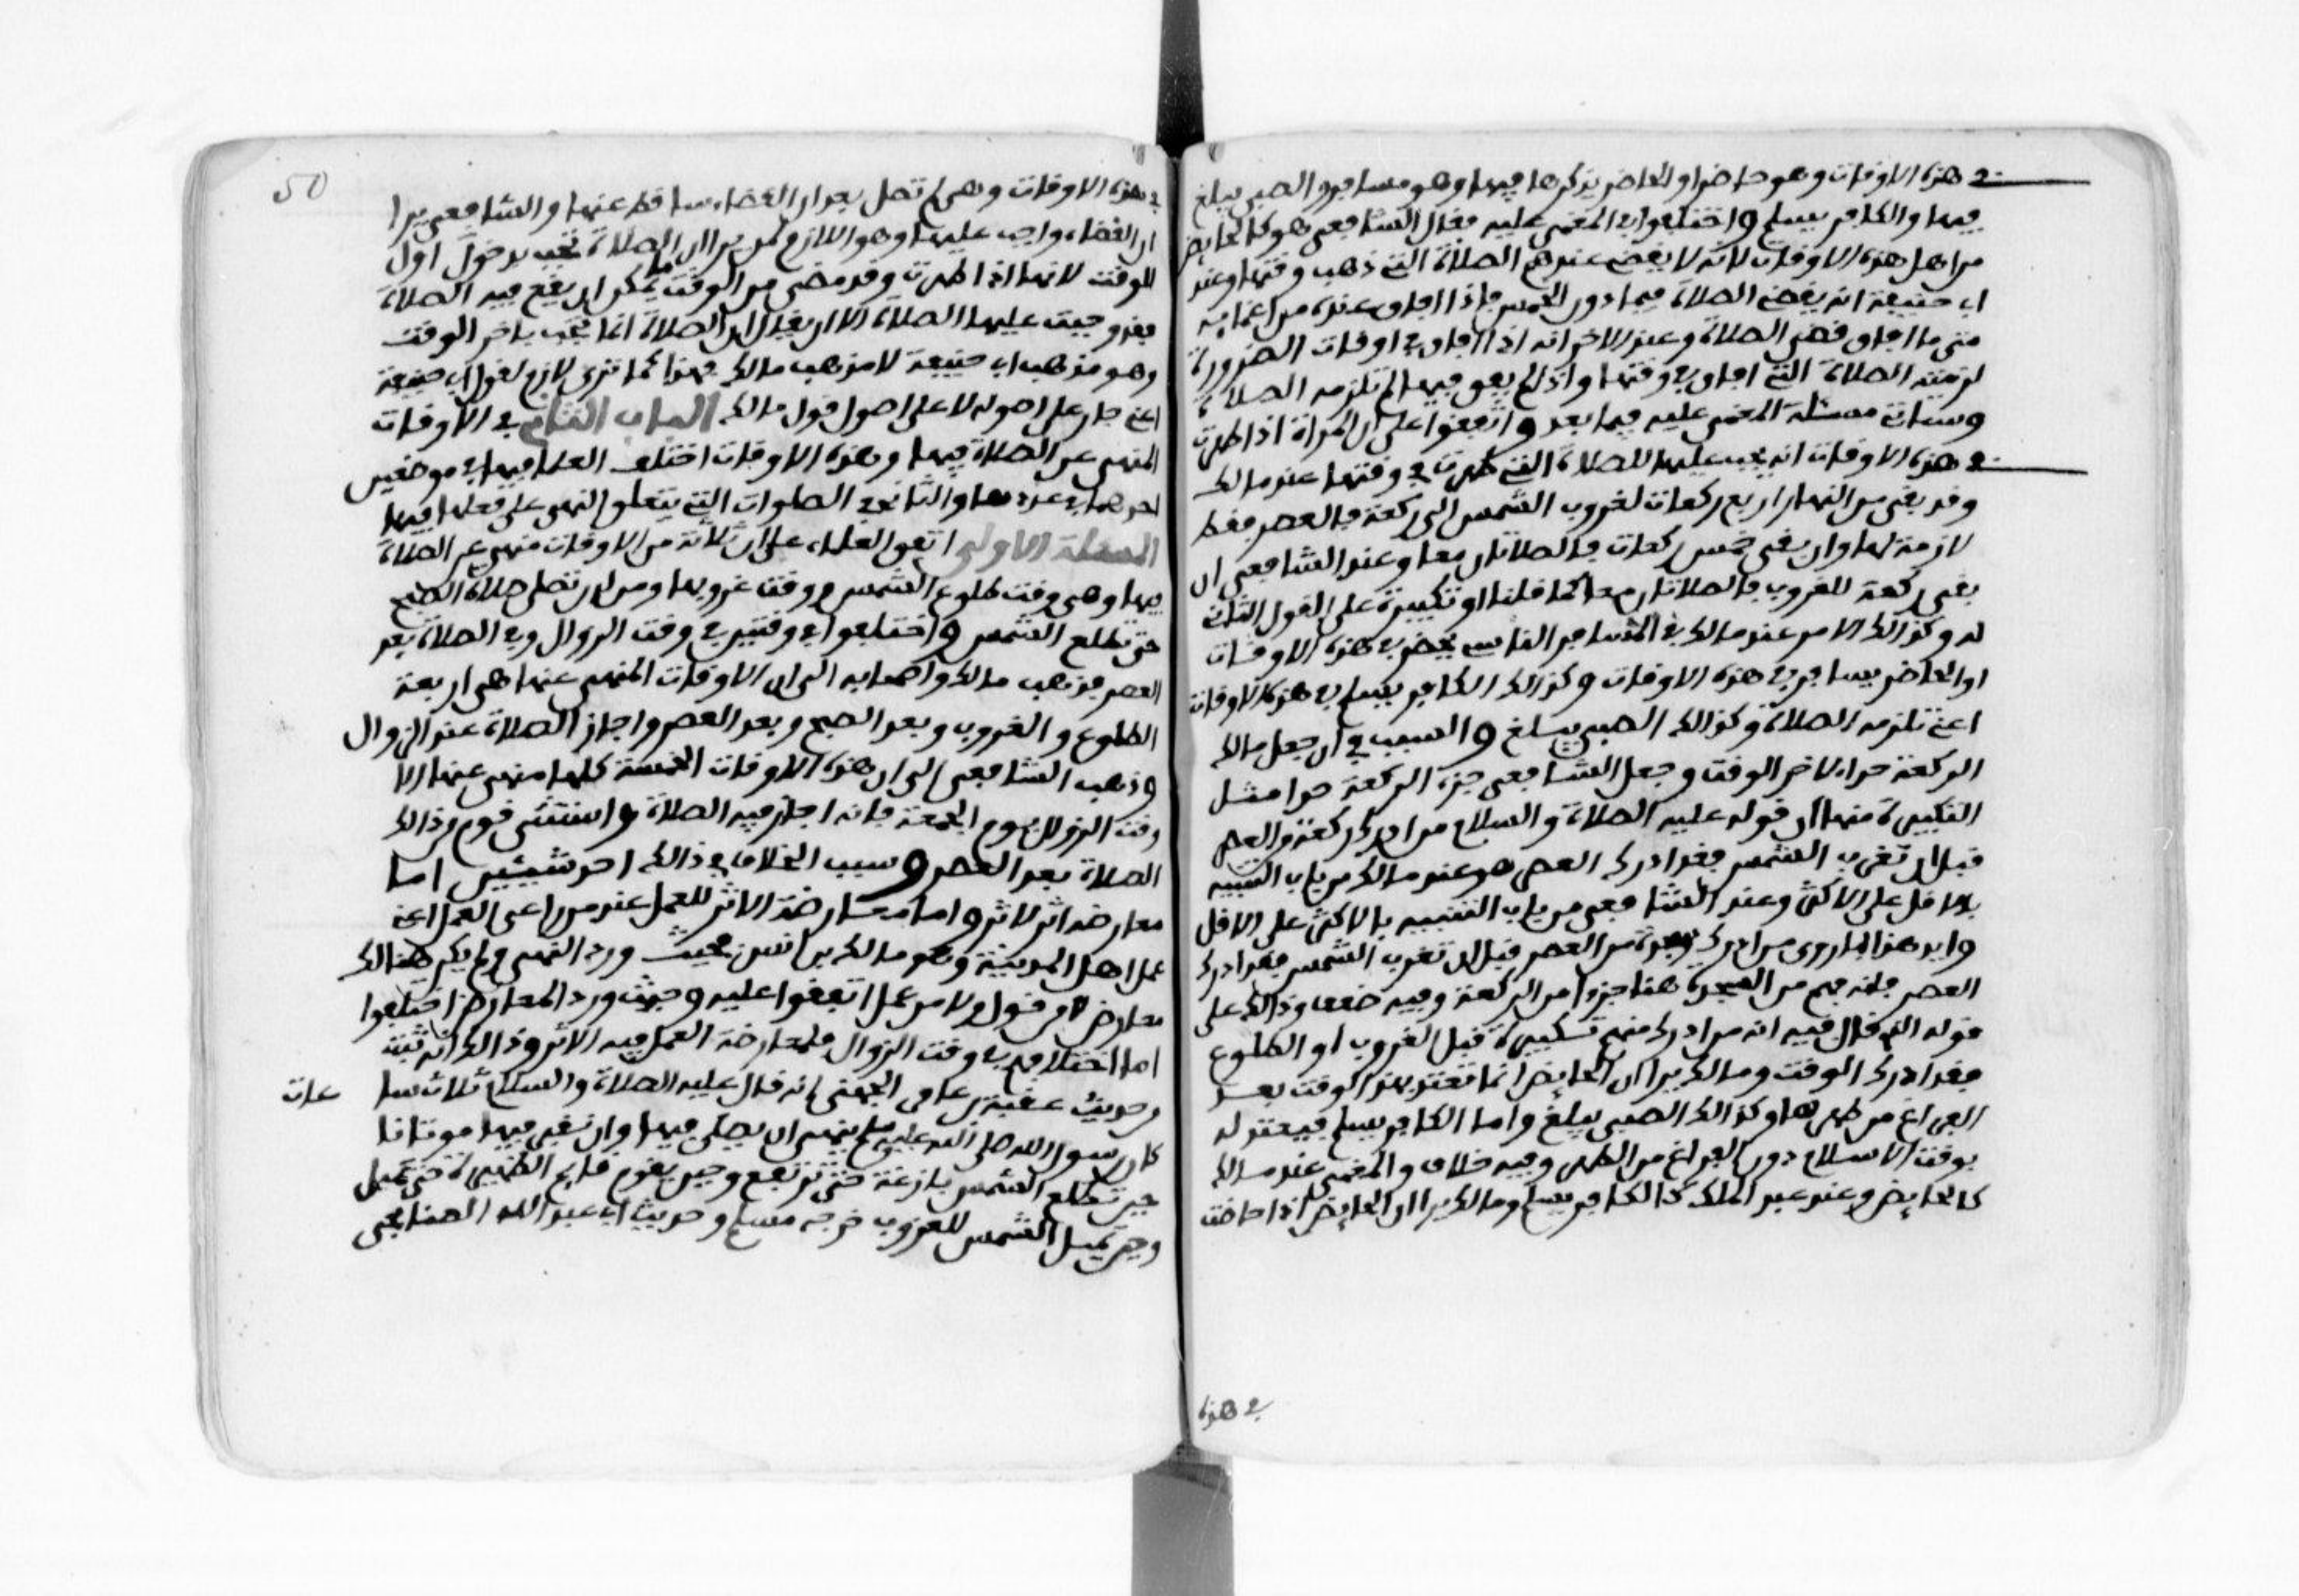 في هذه الاوقات وهو حاضر او الحاضر يذكرها فيها وهو مسافر والصبي يبلغ
فيها والكافر يسلم واختلفوا في المغمى عليه فقال الشافعي هو كالحايض
من اهل هذه الاوقات لانه لا يقضي عندهم الصلاة التي ذهب وقتها وعند
ابي حنيفة انه يقضي الصلاة فيما دون الخمس فاذا افاق عنده من اغمايه
متى ما افاق قضى الصلاة وعند الاخر انه اذا افاق في اوقات الضرورة
لزمته الصلاة التي افاق في وقتها واذا لم يفق فيها لم تلزمه الصلاة
وستاتي مسئلة المغمى عليه فيما بعد واتفقوا على ان المراة اذا طهرت
في هذه الاوقات انه يجب عليها الصلاة التي طهرت في وقتها عند مالك
وقد بقي من النهار اربع ركعات لغروب الشمس الى ركعة فالعصر فقط
لازمة لها وان بقي خمس ركعات فالصلاتان معا وعند الشافعي ان
بقي ركعة للغروب فالصلاتان معا كما قلنا او تكبيرة على القول الثاني
له وكذالك الامر عند مالك في المسافر الناسي يحضر في هذه الاوقات
او الحاضر يسافر في هذه الاوقات وكذالك الكافر يسلم في هذه الاوقات
اعني تلزمه الصلاة وكذالك الصبي يبلغ والسبب في ان جعل مالك
الركعة حدا لاخر الوقت وجعل الشافعي جزء الركعة حدا مثل
التكبيرة منها ان قوله عليه الصلاة والسلام من ادرك ركعة من العصر
قبل ان تغرب الشمس فقد ادرك العصر هو عند مالك من باب التنبيه
بالاقل على الاكثر وعند الشافعي من باب التنبيه بالاكثر على الاقل
وايد هذا بما روى من ادرك سجدة من العصر قبل ان تغرب الشمس فقد ادرك
العصر فانه فهم من السجدة هنا جزءا من الركعة وفيه ضعف وذالك على
قوله الذي قال فيه انه من ادرك منهم تكبيرة قبل الغروب او الطلوع
فقد ادرك الوقت ومالك يرا ان الحايض انما تعتد بهذا الوقت بعد
الفراغ من طهرها وكذالك الصبي يبلغ واما الكافر يسلم فيعتد له
بوقت الاسلام دون الفراغ من الطهر وفيه خلاف والمغمى عند مالك
كالحايض وعند عبد الملك كالكافر يسلم ومالك يرا ان الحايض اذا حاضت
في هذه
50
في هذه الاوقات وهي لم تصل بعد ان القضاء ساقط عنها والشافعي يرا
ان القضاء واجب عليها وهو اللازم لمن يرا ان الصلاة تجب بدخول اول
الوقت لانها اذا طهرت وقد مضى من الوقت ما يمكن ان يقع فيه الصلاة
فقد وجبت عليها الصلاة الا ان يقال ان الصلاة انما تجب باخر الوقت
وهو مذهب ابي حنيفة لا مذهب مالك فهذا كما ترى لازم لقول ابي حنيفة
اعني جار على اصوله لا على اصول قول مالك الباب الثاني في الاوقات
المنهي عن الصلاة فيها وهذه الاوقات اختلف العلما فيها في موضعين
احدهما في عددها والثاني في الصلوات التي يتعلق النهي على فعلها فيها
المسئلة الاولى اتفق العلماء على ان ثلاثة من الاوقات منهي عن الصلاة
فيها وهي وقت طلوع الشمس ووقت غروبها ومن لدن تصلى صلاة الصبح
حتى تطلع الشمس واختلفوا في وقتين في وقت الزوال وفي الصلاة بعد
العصر فذهب مالك واصحابه الى ان الاوقات المنهي عنها هي اربعة
الطلوع والغروب وبعد الصبح وبعد العصر واجاز الصلاة عند الزوال
وذهب الشافعي الى ان هذه الاوقات الخمسة كلها منهي عنها الا
وقت الزوال يوم الجمعة فانه اجاز فيه الصلاة واستثنى قوم من ذالك
الصلاة بعد العصر وسبب الخلاف في ذالك احد شيئين اما
معارضة اثر لاثر واما معارضة الاثر للعمل عند من راعى العمل اعني
عمل اهل المدينة وهو مالك بن انس فحيث ورد النهي ولم يكن هنالك
معارض لا من قول ولا من عمل اتفقوا عليه وحيث ورد المعارض اختلفوا
اما اختلافهم في وقت الزوال فلمعارضة العمل فيه الاثر وذالك انه ثبت
من حديث عقبة بن عامر الجهني انه قال عليه الصلاة والسلام ثلاث سا عات
كان رسول الله صلى الله عليه وسلم ينهى ان يصلى فيها وان نقبر فيها موتانا
حين تطلع الشمس بازغة حتى ترتفع وحين يقوم قايم الظهيرة حتى تميل
وحين تميل الشمس للغروب خرجه مسلم وحديث ابي عبد الله الصنابحي